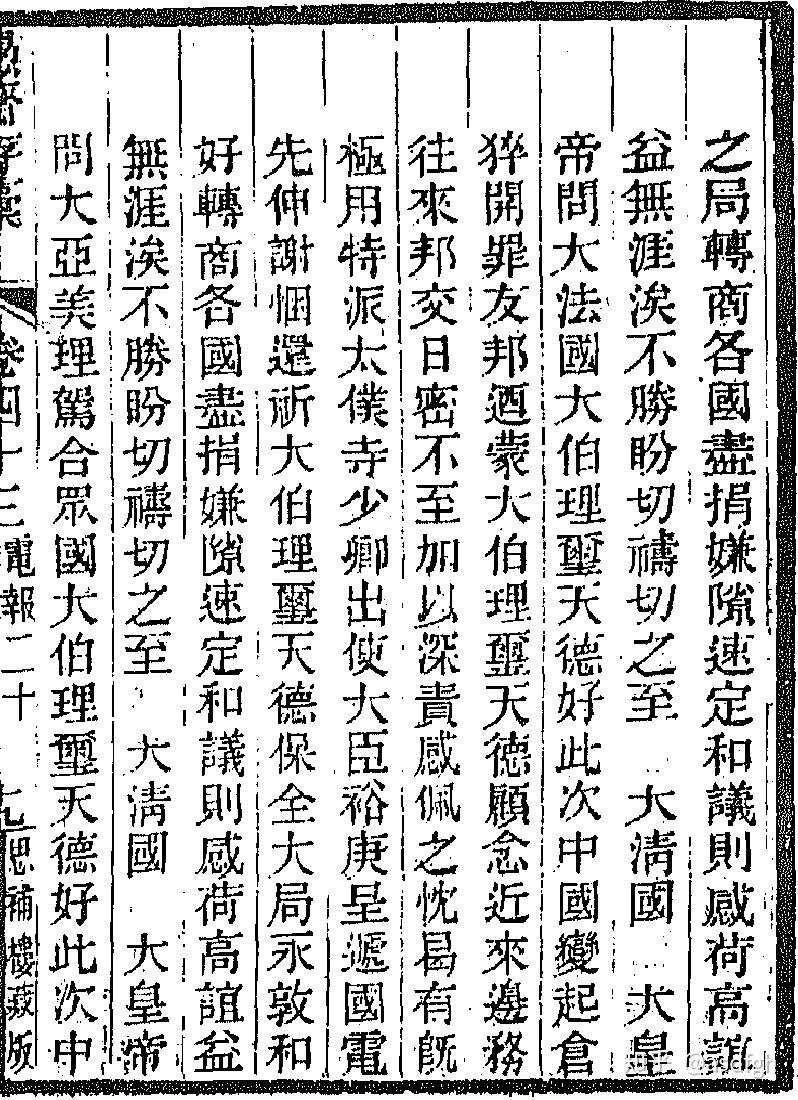 之局轉商各國盡捐嫌隙速定和議則感荷高誼
益無涯涘不勝盼切禱切之至 大清國 大皇
帝問大法國大伯理璽天德好此次中國變起倉
猝開罪友邦迺蒙大伯理璽天德顧念近來邊務
往來邦交日密不至加以深責感佩之忱曷有旣
極用特派太僕寺少卿出使大臣裕庚呈遞國電
先伸謝悃還祈大伯理璽天德保全大局永敦和
好轉商各國盡捐嫌隙速定和議則感荷高誼益
無涯涘不勝盼切禱切之至 大清國 大皇帝
問大亞美理駕合眾國大伯理璽天德好此次中
愚齋存稾 卷四十三 電報二十 思補樓藏版
知乎